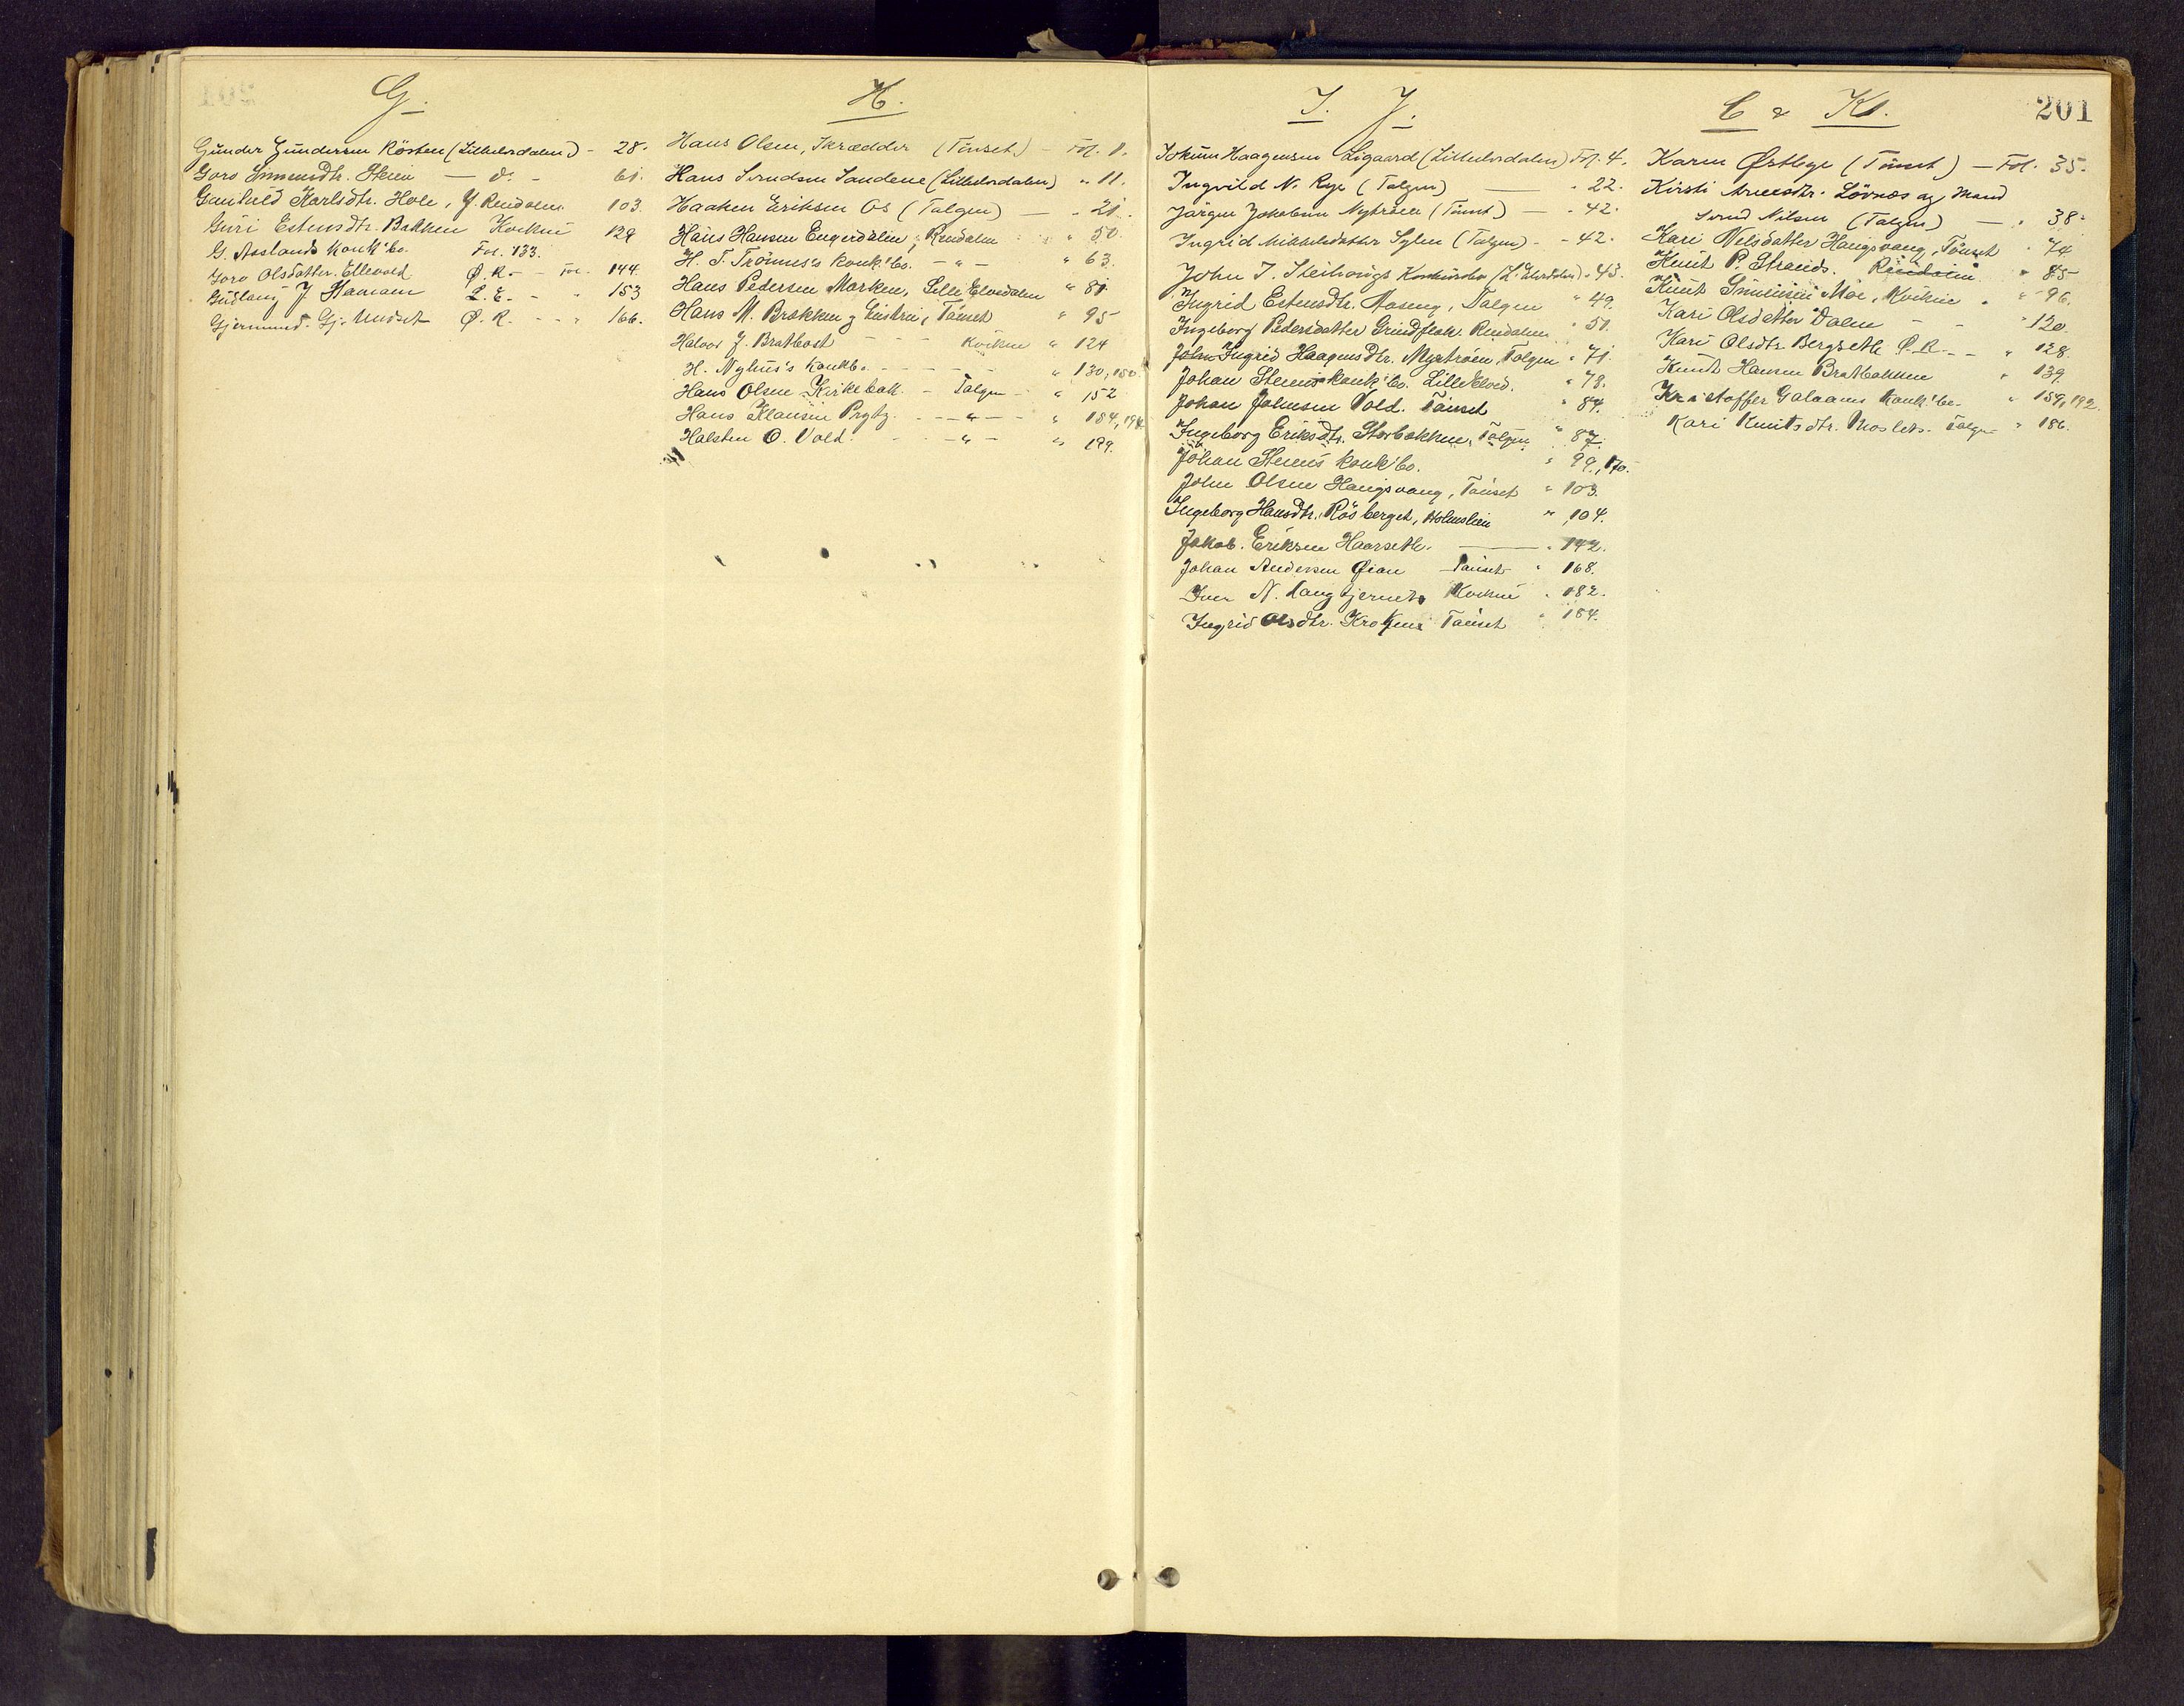 G.
Gunder Gundersen Rösten (Lilleelvedalen) - 28.
Goro Simensdtr. Steien — do. - 61.
Gunhild Karlsdtr. Hole, Y. Rendalen. 103.
Guri Estensdtr. Bakken Kvikne 129
G. Aaslands konk.bo. Fol. 133.
Goro Olsdatter Ellevold Ø. R. - - Fol. 144.
Gudlaug J Hamarn L. E. - " 153
Gjermund Gj. Undset Ø. R. - - " 166.
H.
Hans Olsen, Skrædder (Tönset) — Fol. 1.
Hans Svendsen Sandene (Lilleelvedalen) " 11.
Haaken Eriksen Os (Tolgen) — " 21.
Hans Hansen Engerdalen, Rendalen " 50.
H. T. Trönnes's konk.bo. — " — " 63.
Hans Pedersen Morken, Lille Elvedalen " 81.
Hans M. Brækken g Enstrøe, Tönset " 95
Halvor J. Bratbost - - - Kvikne " 124
H. Nyhus's Konkbo. - - - - " 130, 150.
Hans Olsen Kirkebak. - Tolgen - " 152
Hans Klausen Prytz. - - " - - " 184, 194
Halsten O. Vold. - - " - " 199.
I. J.
201
Jokum Haagensen Aigaard (Lilleelvedalen) Fol. 4.
Ingrild N. Rye (Tolgen) — " 22.
Jörgen Jakobsen Nytröen (Tönset) — " 42.
Ingrid Mikkelsdatter Sylen (Tolgen) - " 42.
John T. Steihougs Konkursbo (L. Elvedalen) " 43.
Ingrid Estensdtr. Moseng, Tolgen " 49.
Ingeborg Pedersdatter Grindflek Rendalen " 51.
John Ingrid Haagensdtr. Myrtrøen, Tolgen " 71.
Johan Steens konk.bo. LilleElved. " 78.
Johan Johnsen Vold. Tönset " 84.
Ingeborg Eriksdtr. Storbækken, Tolgen " 87.
Johan Steens konk.bo. " 99, 170.
John Olsen Haugsvang, Tönset " 103.
Ingeborg Hansdtr. Rösberget, Holmslien " 104.
Jakob Eriksen Haarseth. — " 142.
Johan Andersen Øian Tönset " 168.
Iver N. Langtjernet Kvikne " 182.
Ingrid Olsdtr. Krokene Tönset " 184.
C & K.
Karen Østbye (Tönset) — Fol. 35.
Kirsti Arnesdtr. Lövnæs og Mand
Svend Nilsen (Tolgen) — " 38.
Kari Nelsdatter Haugsvang, Tönset " 74
Knut P. Strands. Rendalen " 85
Knut Simensen Moe, Kvikne. " 96.
Kari Olsdatter Dalen - - " 120.
Kari Olsdtr. Bergseth Ø. R. - - " 128.
Knut Hansen Bratbakken " 139.
Kristoffer Galaaens konk.bo. " 159, 192.
Kari Knutsdtr. Moslet. Tolgen " 186.